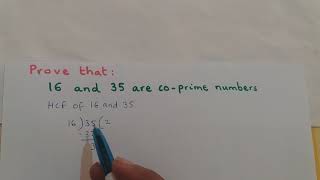 Prove that:
16 and 35 are co-prime numbers
HCF of 16 and 35
16 ) 35 ( 2